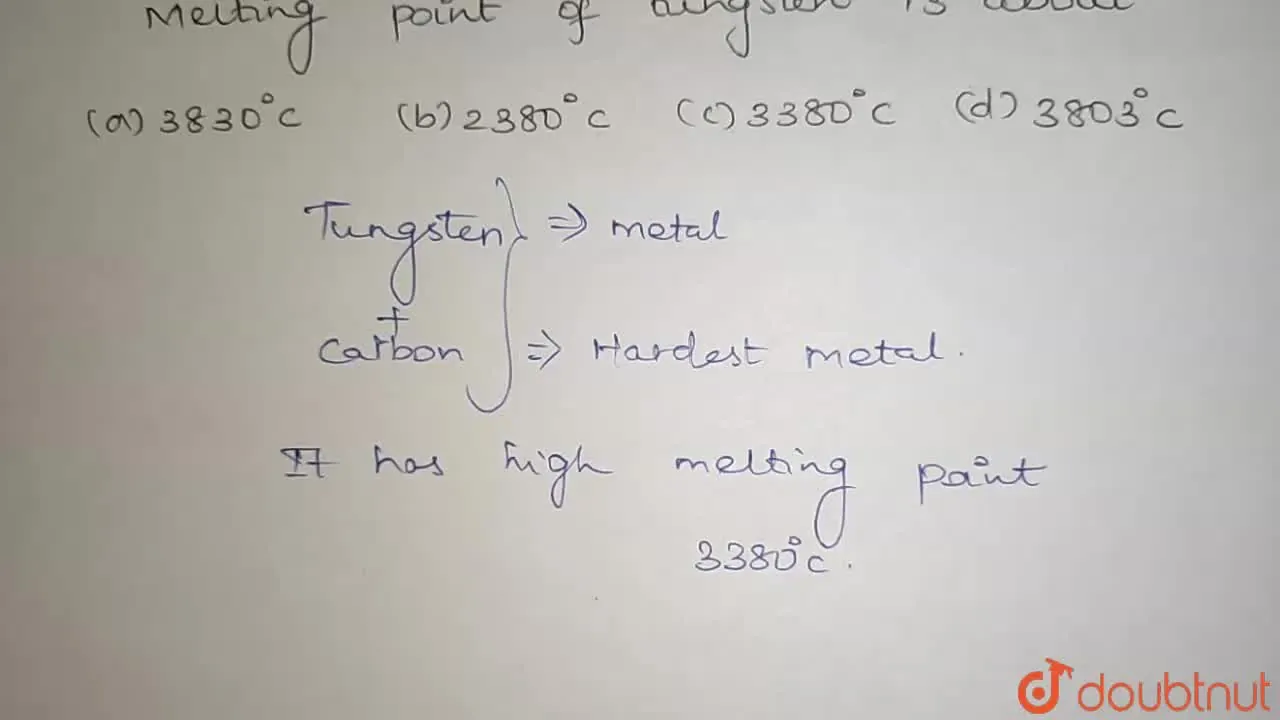 Melting point of tungsten is about
(a) 3830°C (b) 2380°C (c) 3380°C (d) 3803°C
Tungsten } ⇒ metal
+
Carbon ⇒ Hardest metal.
It has high melting point
3380°C.
doubtnut